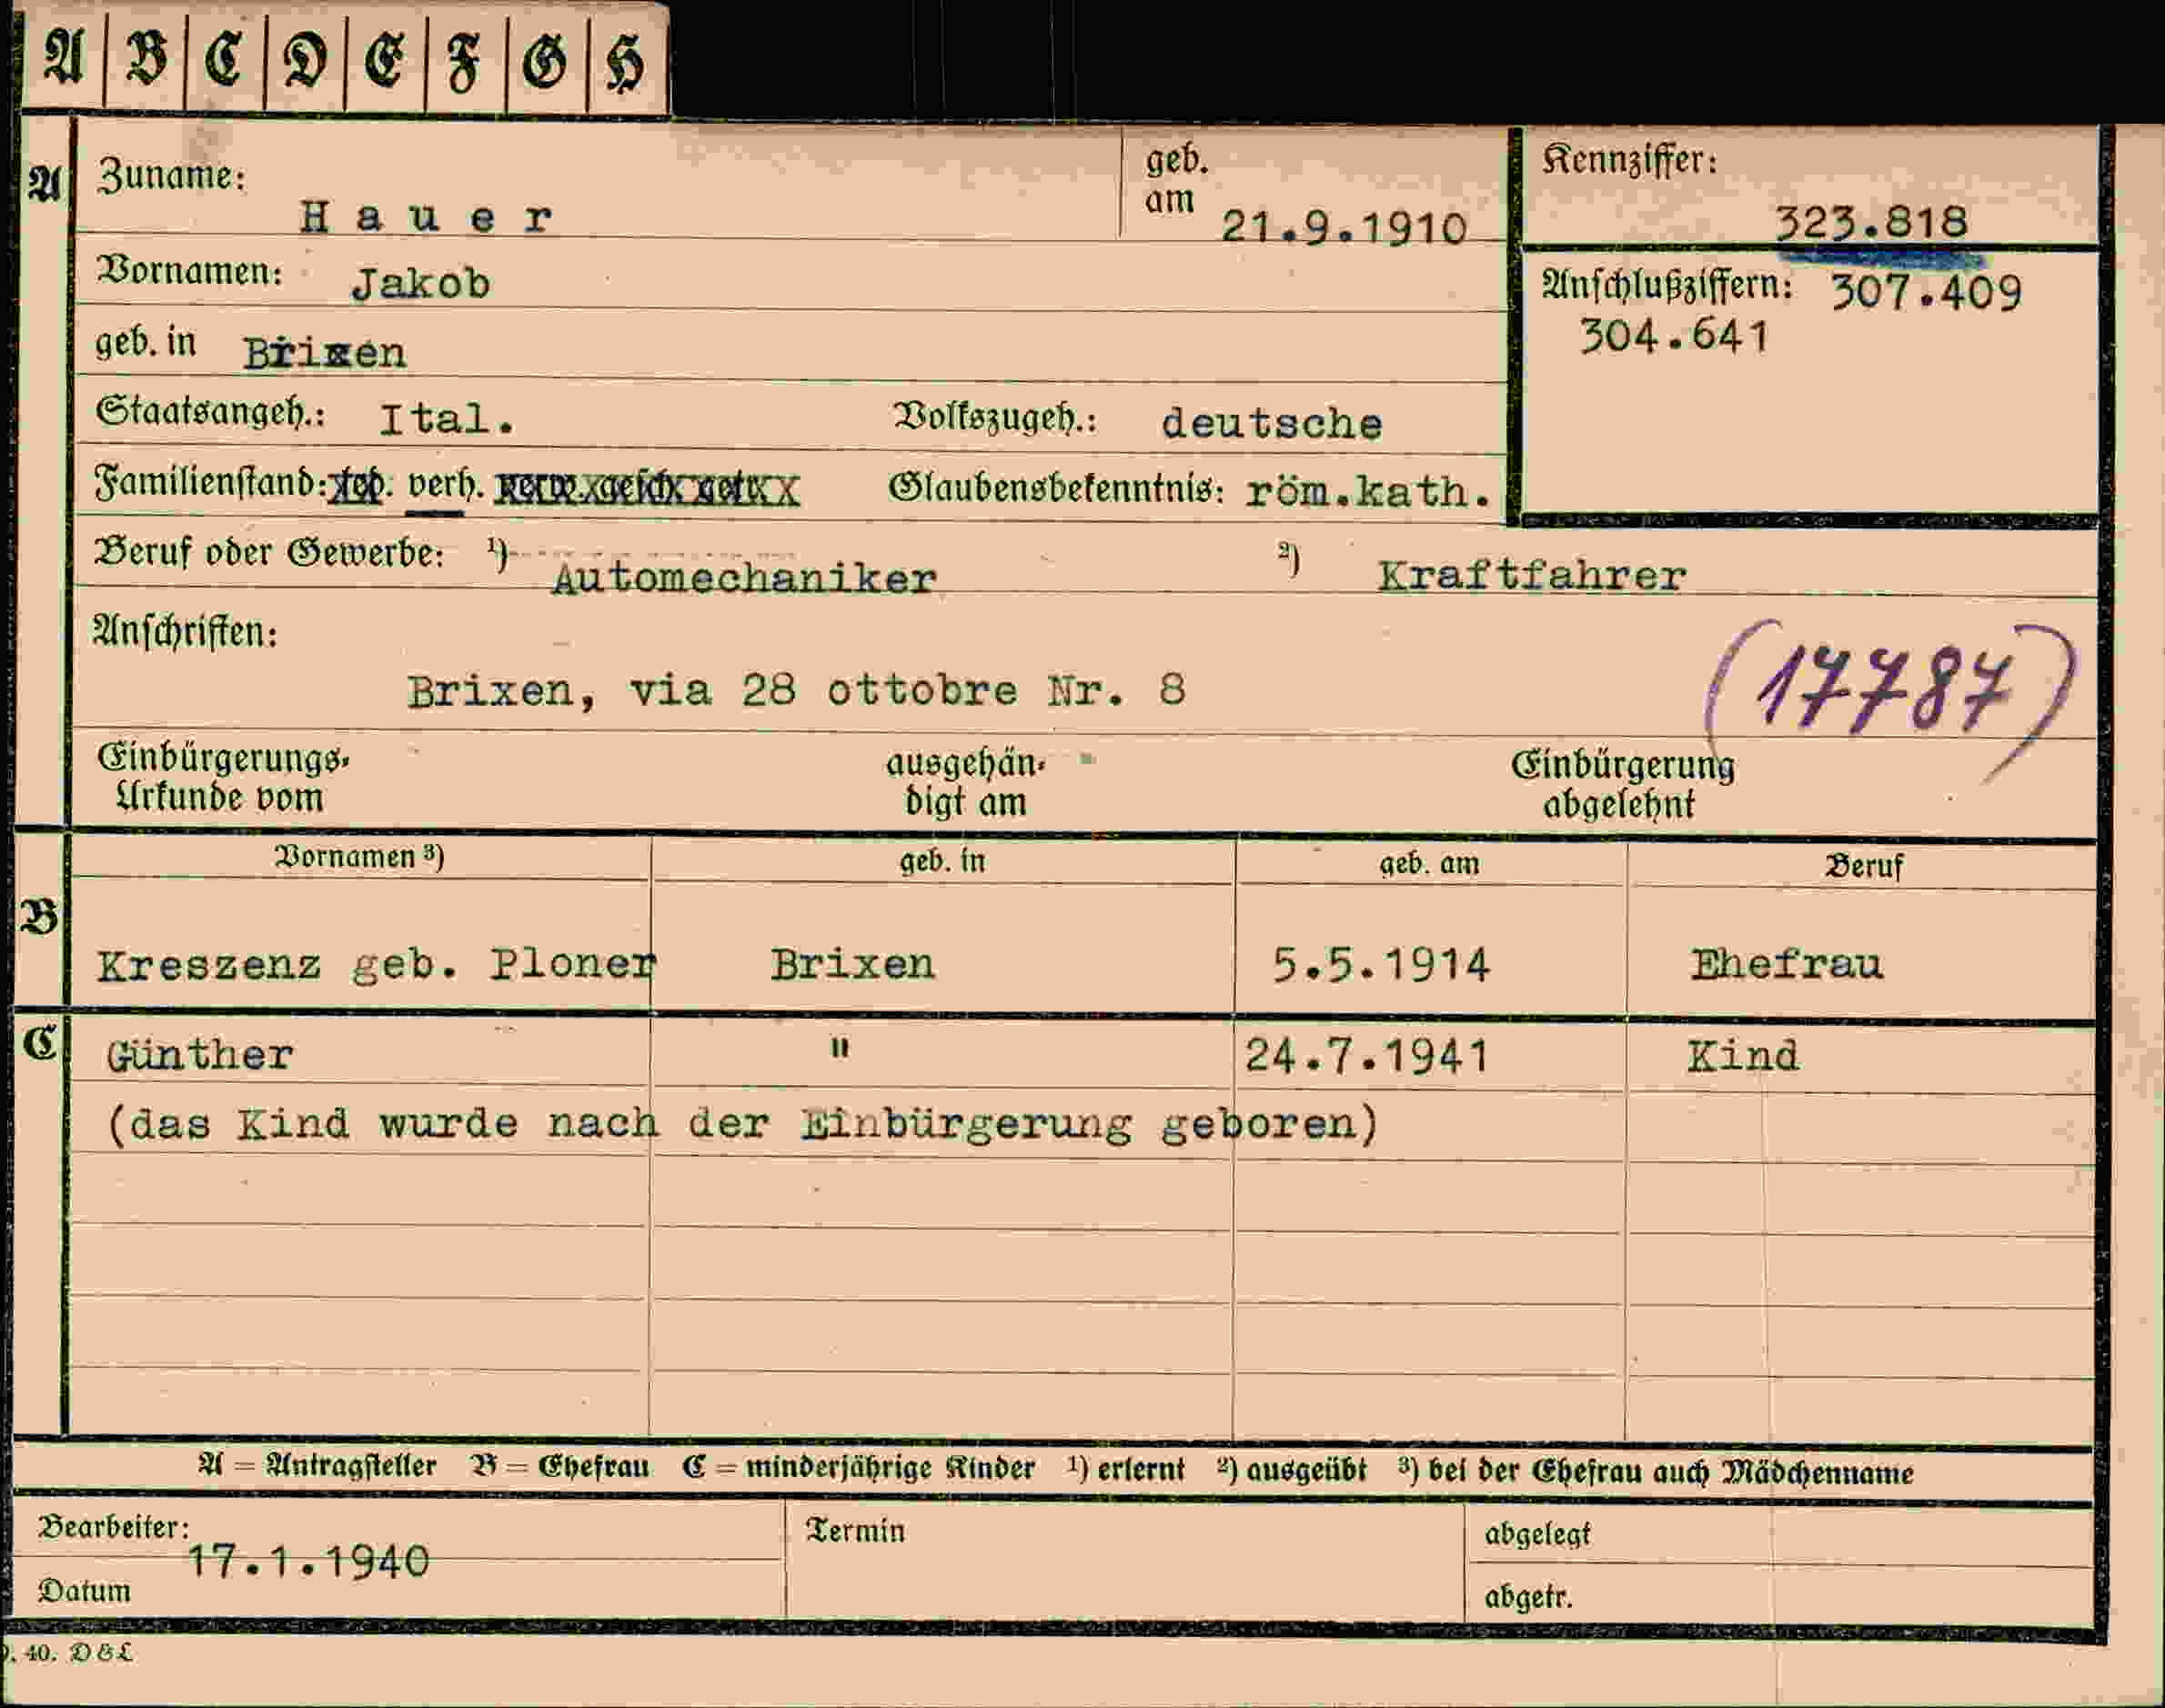 A B C D E F G H
A Zuname: Hauer geb. am 21.9.1910 Kennziffer: 323.818
Vornamen: Jakob Anschlußziffern: 307.409
304.641
geb. in Brixen
Staatsangeh.: Ital. Volkszugeh.: deutsche
Familienstand: led. verh. verw. gesch. getr. Glaubensbekenntnis: röm.kath.
Beruf oder Gewerbe: 1) Automechaniker 2) Kraftfahrer
Anschriften:
Brixen, via 28 ottobre Nr. 8 (17787)
Einbürgerungs- ausgehän- Einbürgerung
Urkunde vom digt am abgelehnt
Vornamen 3) geb. in geb. am Beruf
B
Kreszenz geb. Ploner Brixen 5.5.1914 Ehefrau
C Günther " 24.7.1941 Kind
(das Kind wurde nach der Einbürgerung geboren)
A = Antragsteller B = Ehefrau C = minderjährige Kinder 1) erlernt 2) ausgeübt 3) bei der Ehefrau auch Mädchenname
Bearbeiter: Termin abgelegt
17.1.1940
Datum abgetr.
40. D&L